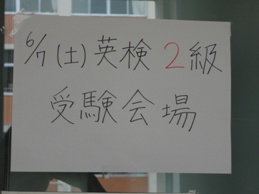 6/7(土)英検2級
受験会場